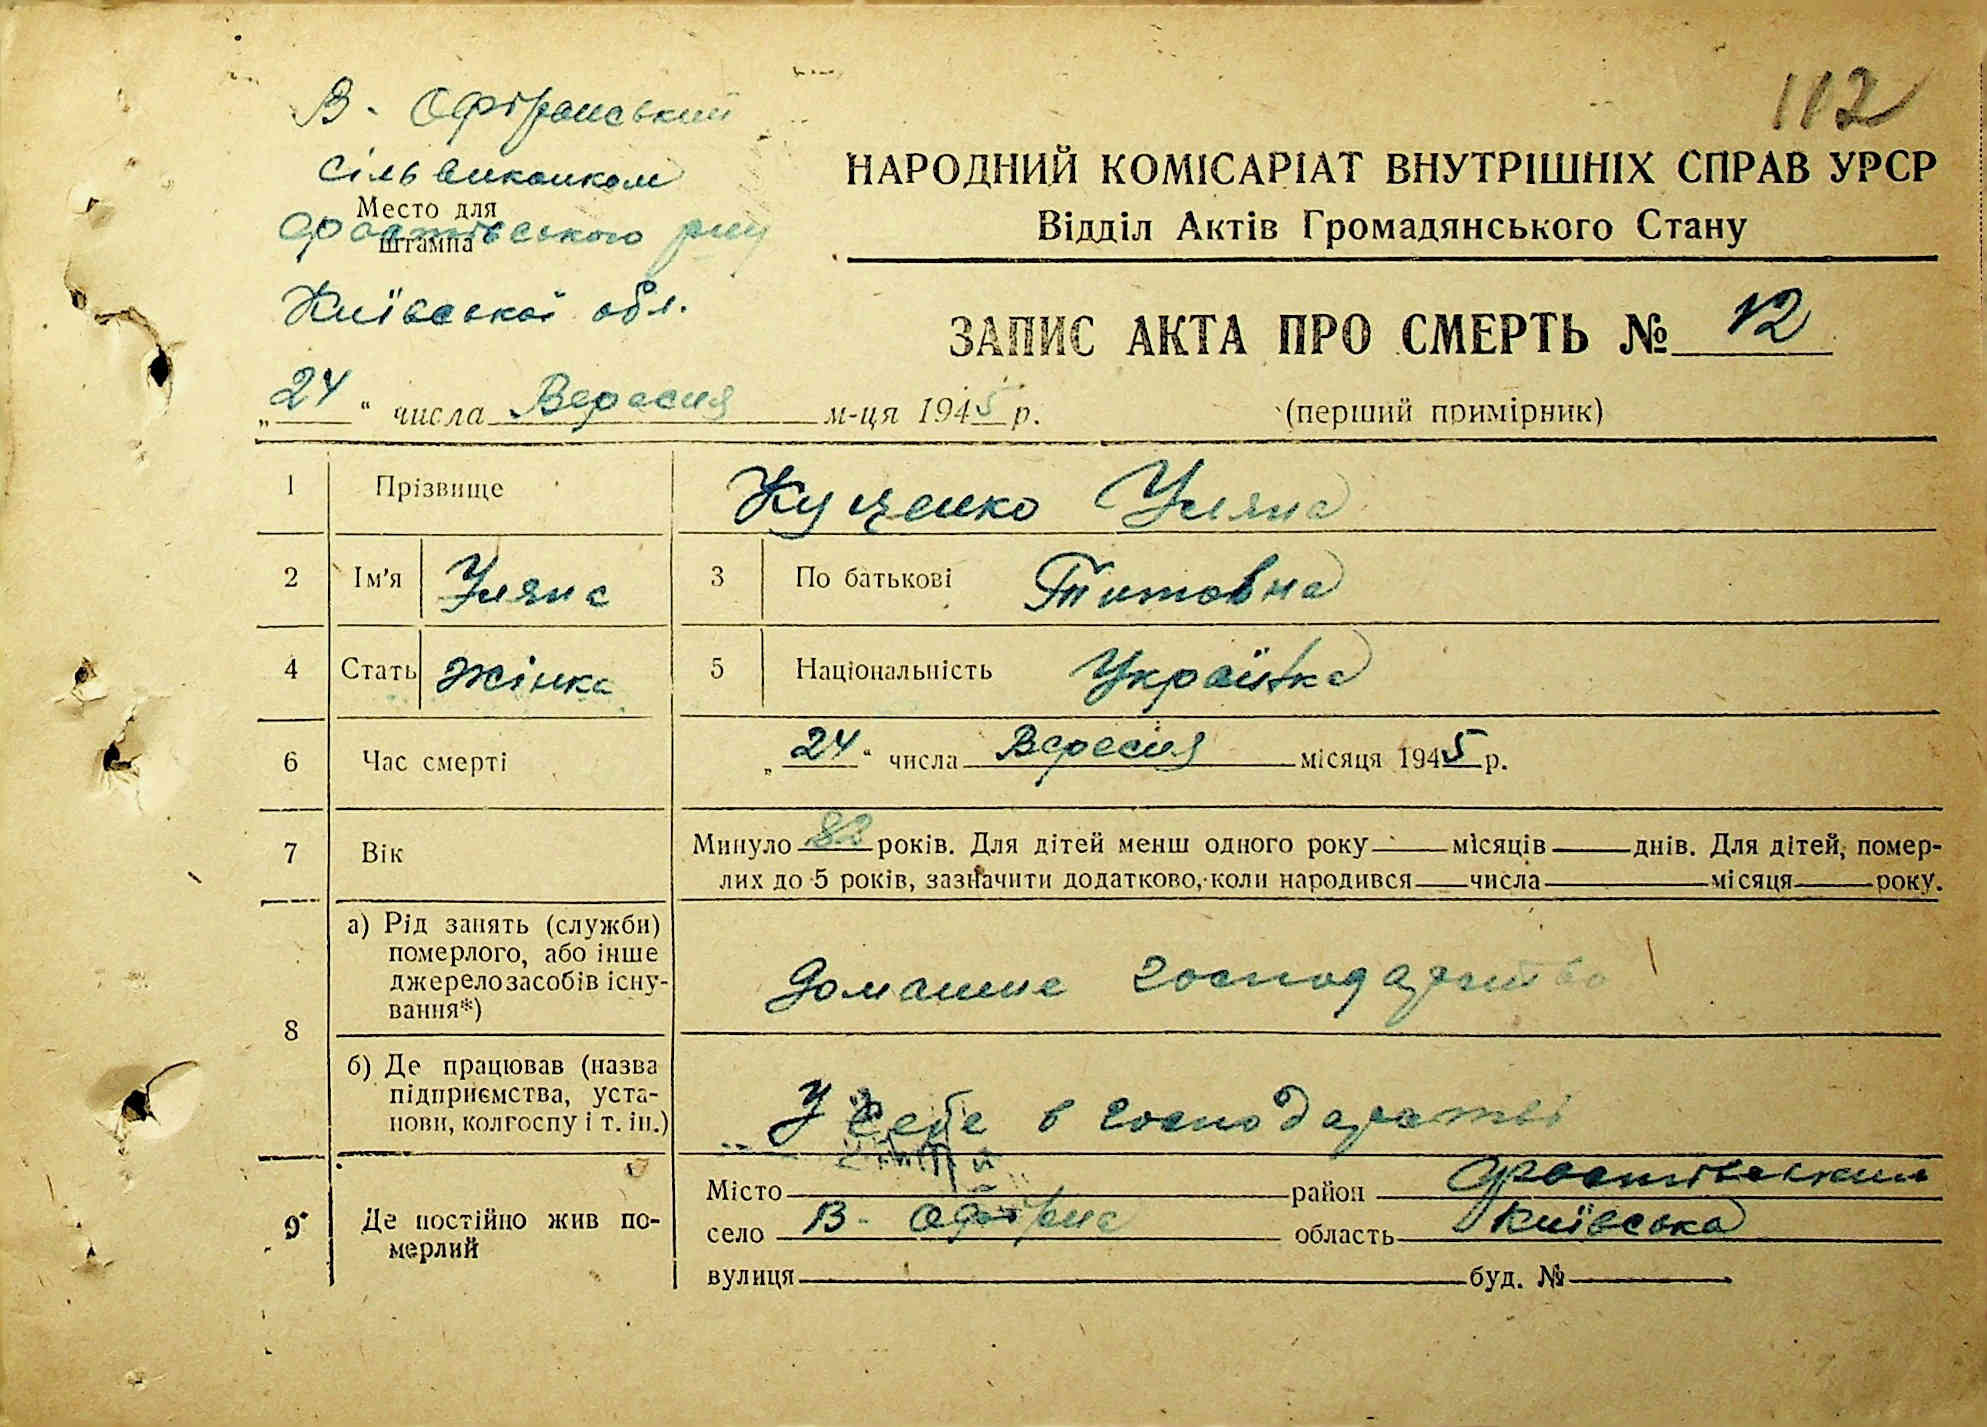 112
В. Офірнський
сільвиконком
Место для
штампа
Фастівського р-ну
Київської обл.
НАРОДНИЙ КОМІСАРІАТ ВНУТРІШНІХ СПРАВ УРСР
Відділ Актів Громадянського Стану
ЗАПИС АКТА ПРО СМЕРТЬ № 12
„24“ числа Вересня м-ця 1945 р. (перший примірник)
1 Прізвище Куценко Уляна
2 Ім'я Уляна 3 По батькові Титовна
4 Стать жінка 5 Національність Українка
6 Час смерті „24“ числа Вересня місяця 1945 р.
7 Вік Минуло 82 років. Для дітей менш одного року — місяців — днів. Для дітей, помер-
лих до 5 років, зазначити додатково, коли народився — числа — місяця — року.
8 а) Рід занять (служби)
померлого, або інше
джерело засобів існу-
вання*)
домашнє господарство
б) Де працював (назва
підприємства, уста-
нови, колгоспу і т. ін.)
У себе в господарстві
9 Де постійно жив по-
мерлий
Місто район Фастівський
село В- Офірна область Київська
вулиця буд. №